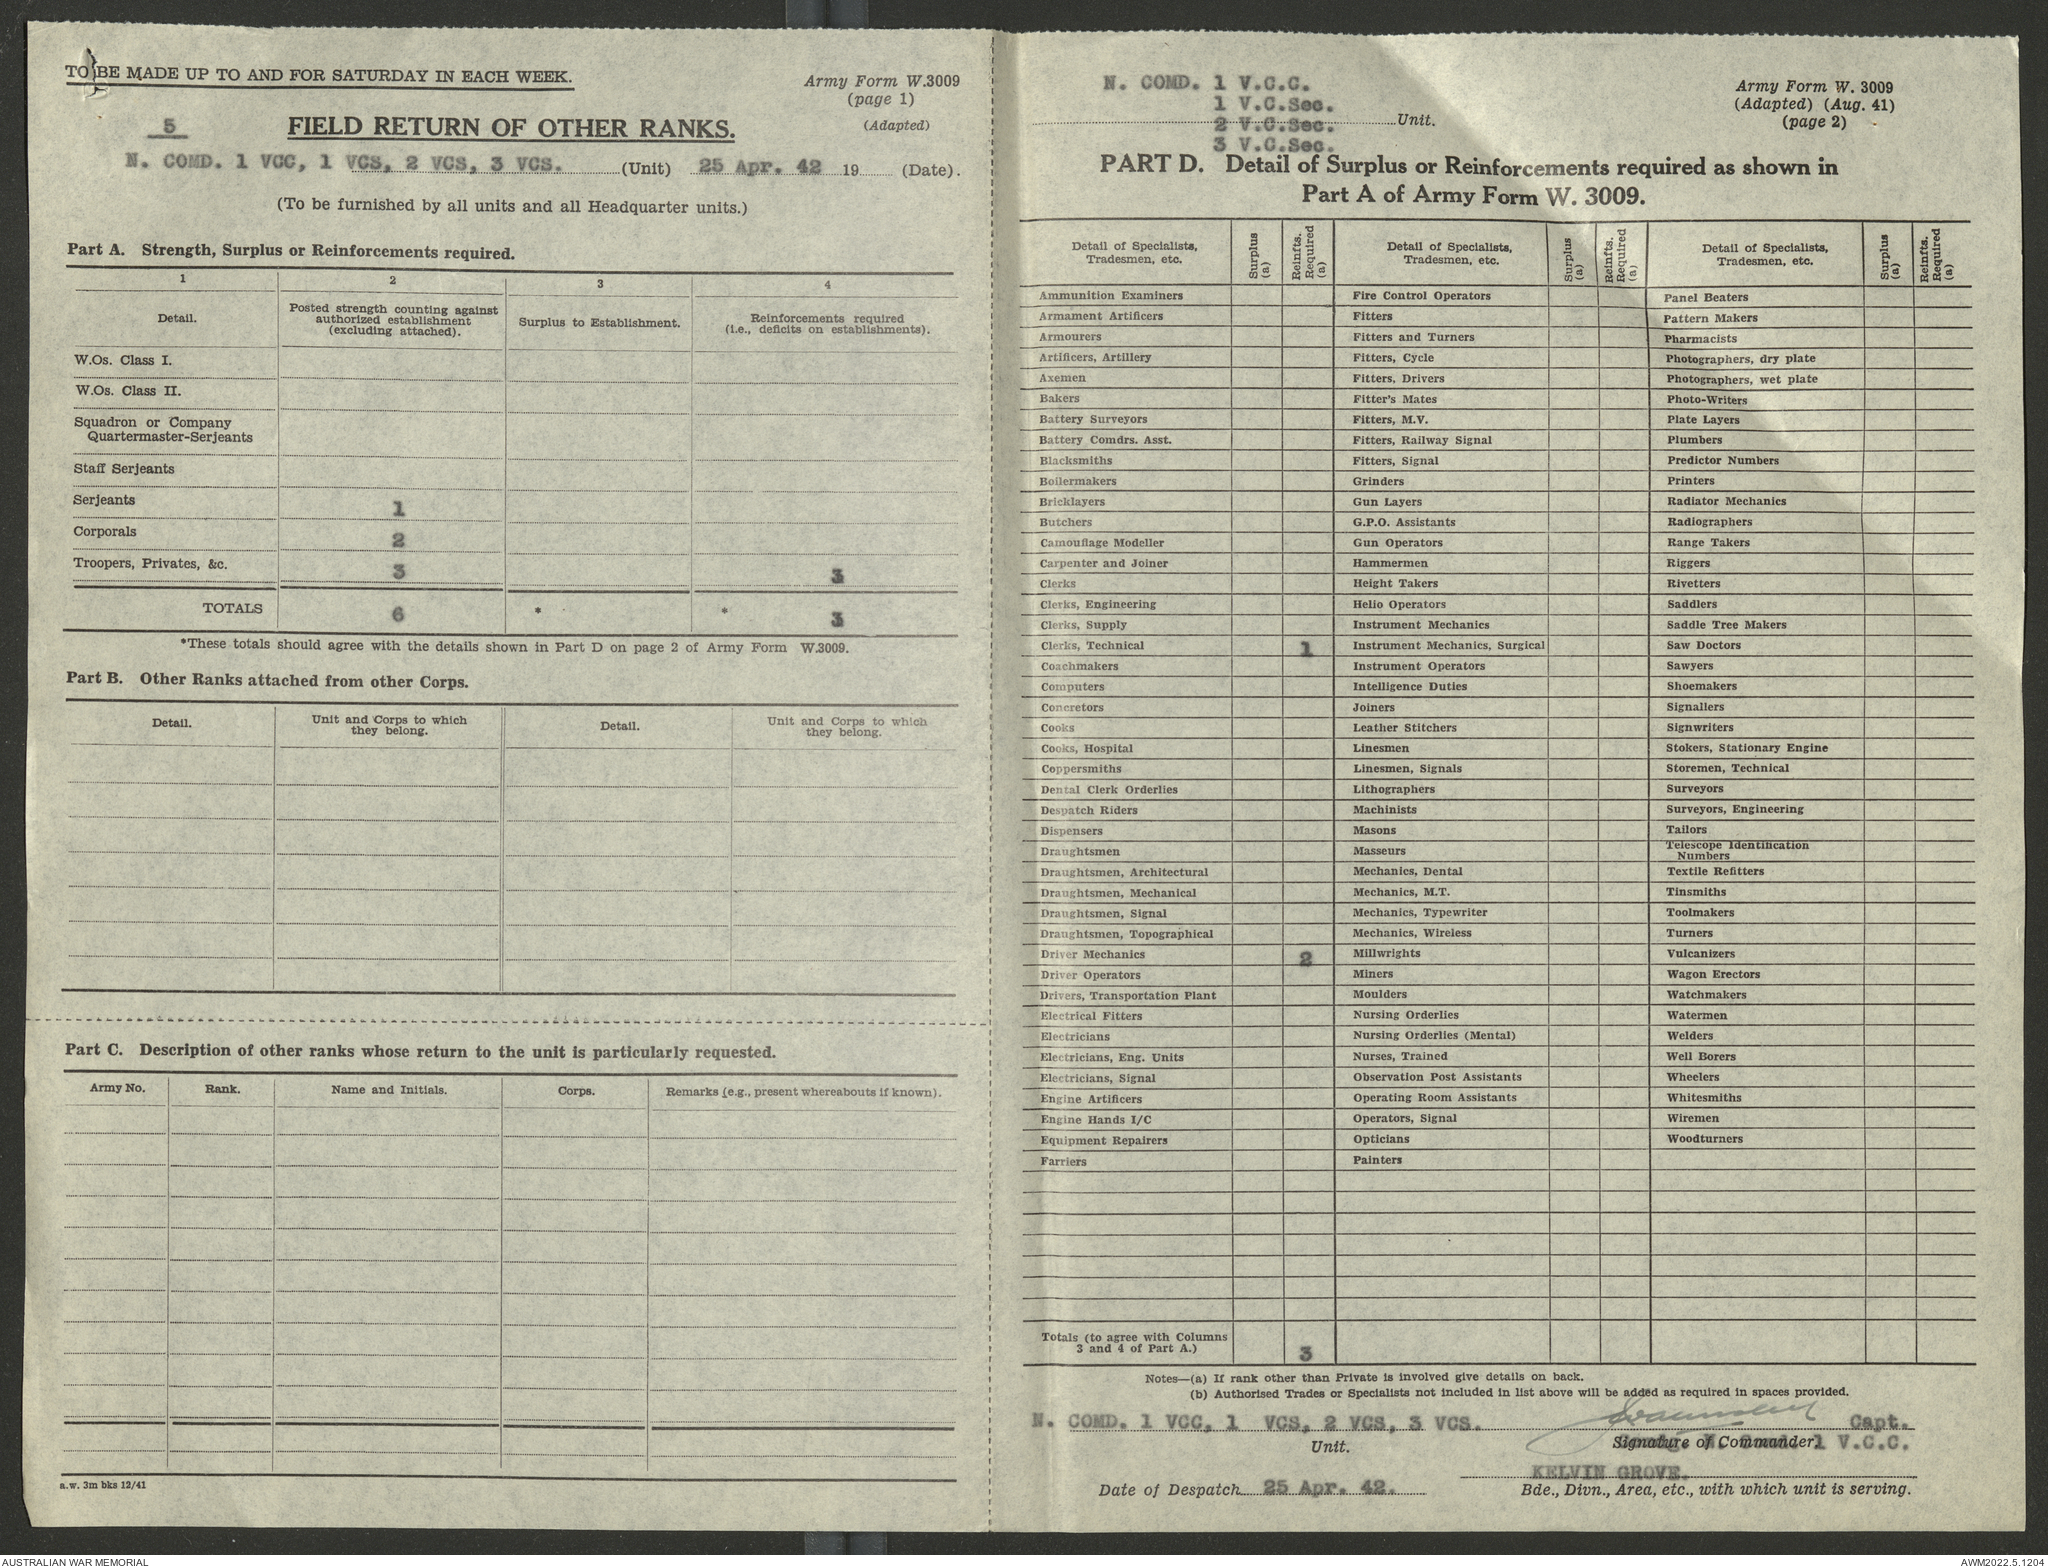 TO BE MADE UP TO AND FOR SATURDAY IN EACH WEEK.
Army Form W.3009
(page 1)
(Adapted)
5
FIELD RETURN OF OTHER RANKS.
N. COMD. 1 VCC, 1 VCS, 2 VCS, 3 VCS. (Unit) 25 Apr. 42 19 (Date).
(To be furnished by all units and all Headquarter units.)
Part A. Strength, Surplus or Reinforcements required.
1 2 3 4
Detail.
Posted strength counting against
authorized establishment
(excluding attached).
Surplus to Establishment.
Reinforcements required
(i.e., deficits on establishments).
W.Os. Class I.
W.Os. Class II.
Squadron or Company
Quartermaster-Serjeants
Staff Serjeants
Serjeants 1
Corporals 2
Troopers, Privates, &c. 3 3
TOTALS 6 * * 3
*These totals should agree with the details shown in Part D on page 2 of Army Form W.3009.
Part B. Other Ranks attached from other Corps.
Detail.
Unit and Corps to which
they belong.
Detail.
Unit and Corps to which
they belong.
Part C. Description of other ranks whose return to the unit is particularly requested.
Army No. Rank. Name and Initials. Corps. Remarks (e.g., present whereabouts if known).
a.w. 3m bks 12/41
N. COMD. 1 V.C.C.
1 V.C.Sec.
2 V.C.Sec. Unit.
3 V.C.Sec.
Army Form W. 3009
(Adapted) (Aug. 41)
(page 2)
PART D. Detail of Surplus or Reinforcements required as shown in
Part A of Army Form W. 3009.
Detail of Specialists,
Tradesmen, etc.
Surplus
(a)
Reinfts.
Required
(a)
Detail of Specialists,
Tradesmen, etc.
Surplus
(a)
Reinfts.
Required
(a)
Detail of Specialists,
Tradesmen, etc.
Surplus
(a)
Reinfts.
Required
(a)
Ammunition Examiners
Armament Artificers
Armourers
Artificers, Artillery
Axemen
Bakers
Battery Surveyors
Battery Comdrs. Asst.
Blacksmiths
Boilermakers
Bricklayers
Butchers
Camouflage Modeller
Carpenter and Joiner
Clerks
Clerks, Engineering
Clerks, Supply
Clerks, Technical 1
Coachmakers
Computers
Concretors
Cooks
Cooks, Hospital
Coppersmiths
Dental Clerk Orderlies
Despatch Riders
Dispensers
Draughtsmen
Draughtsmen, Architectural
Draughtsmen, Mechanical
Draughtsmen, Signal
Draughtsmen, Topographical
Driver Mechanics 2
Driver Operators
Drivers, Transportation Plant
Electrical Fitters
Electricians
Electricians, Eng. Units
Electricians, Signal
Engine Artificers
Engine Hands I/C
Equipment Repairers
Farriers
Fire Control Operators
Fitters
Fitters and Turners
Fitters, Cycle
Fitters, Drivers
Fitter's Mates
Fitters, M.V.
Fitters, Railway Signal
Fitters, Signal
Grinders
Gun Layers
G.P.O. Assistants
Gun Operators
Hammermen
Height Takers
Helio Operators
Instrument Mechanics
Instrument Mechanics, Surgical
Instrument Operators
Intelligence Duties
Joiners
Leather Stitchers
Linesmen
Linesmen, Signals
Lithographers
Machinists
Masons
Masseurs
Mechanics, Dental
Mechanics, M.T.
Mechanics, Typewriter
Mechanics, Wireless
Millwrights
Miners
Moulders
Nursing Orderlies
Nursing Orderlies (Mental)
Nurses, Trained
Observation Post Assistants
Operating Room Assistants
Operators, Signal
Opticians
Painters
Panel Beaters
Pattern Makers
Pharmacists
Photographers, dry plate
Photographers, wet plate
Photo-Writers
Plate Layers
Plumbers
Predictor Numbers
Printers
Radiator Mechanics
Radiographers
Range Takers
Riggers
Rivetters
Saddlers
Saddle Tree Makers
Saw Doctors
Sawyers
Shoemakers
Signallers
Signwriters
Stokers, Stationary Engine
Storemen, Technical
Surveyors
Surveyors, Engineering
Tailors
Telescope Identification
Numbers
Textile Refitters
Tinsmiths
Toolmakers
Turners
Vulcanizers
Wagon Erectors
Watchmakers
Watermen
Welders
Well Borers
Wheelers
Whitesmiths
Wiremen
Woodturners
Totals (to agree with Columns
3 and 4 of Part A.) 3
Notes—(a) If rank other than Private is involved give details on back.
(b) Authorised Trades or Specialists not included in list above will be added as required in spaces provided.
N. COMD. 1 VCC, 1 VCS, 2 VCS, 3 VCS. Capt.
Unit. Signature of Commander. 1 V.C.C.
KELVIN GROVE.
Date of Despatch 25 Apr. 42. Bde., Divn., Area, etc., with which unit is serving.
AUSTRALIAN WAR MEMORIAL AWM2022.5.1204